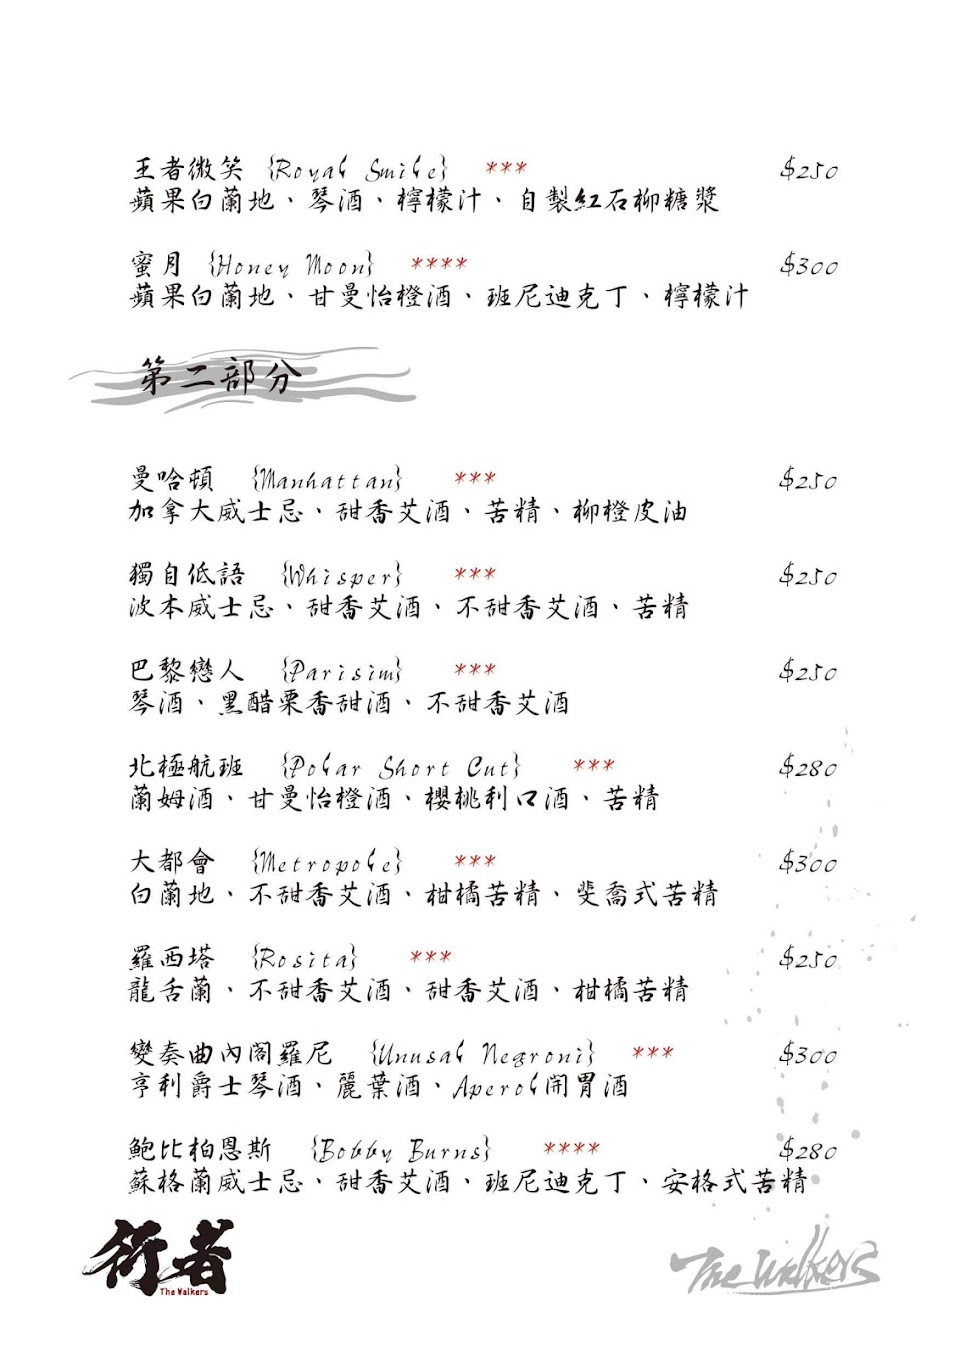 王者微笑 {Royal Smile} *** $250
蘋果白蘭地、琴酒、檸檬汁、自製紅石柳糖漿
蜜月 {Honey Moon} **** $300
蘋果白蘭地、甘曼怡橙酒、班尼迪克丁、檸檬汁
第二部分
曼哈頓 {Manhattan} *** $250
加拿大威士忌、甜香艾酒、苦精、柳橙皮油
獨自低語 {Whisper} *** $250
波本威士忌、甜香艾酒、不甜香艾酒、苦精
巴黎戀人 {Parisim} *** $250
琴酒、黑醋栗香甜酒、不甜香艾酒
北極航班 {Polar Short Cut} *** $280
蘭姆酒、甘曼怡橙酒、櫻桃利口酒、苦精
大都會 {Metropole} *** $300
白蘭地、不甜香艾酒、柑橘苦精、斐喬式苦精
羅西塔 {Rosita} *** $250
龍舌蘭、不甜香艾酒、甜香艾酒、柑橘苦精
變奏曲內閣羅尼 {Unusal Negroni} *** $300
亨利爵士琴酒、麗葉酒、Aperol開胃酒
鮑比柏恩斯 {Bobby Burns} **** $280
蘇格蘭威士忌、甜香艾酒、班尼迪克丁、安格式苦精
衍者
The Walkers
The Walkers